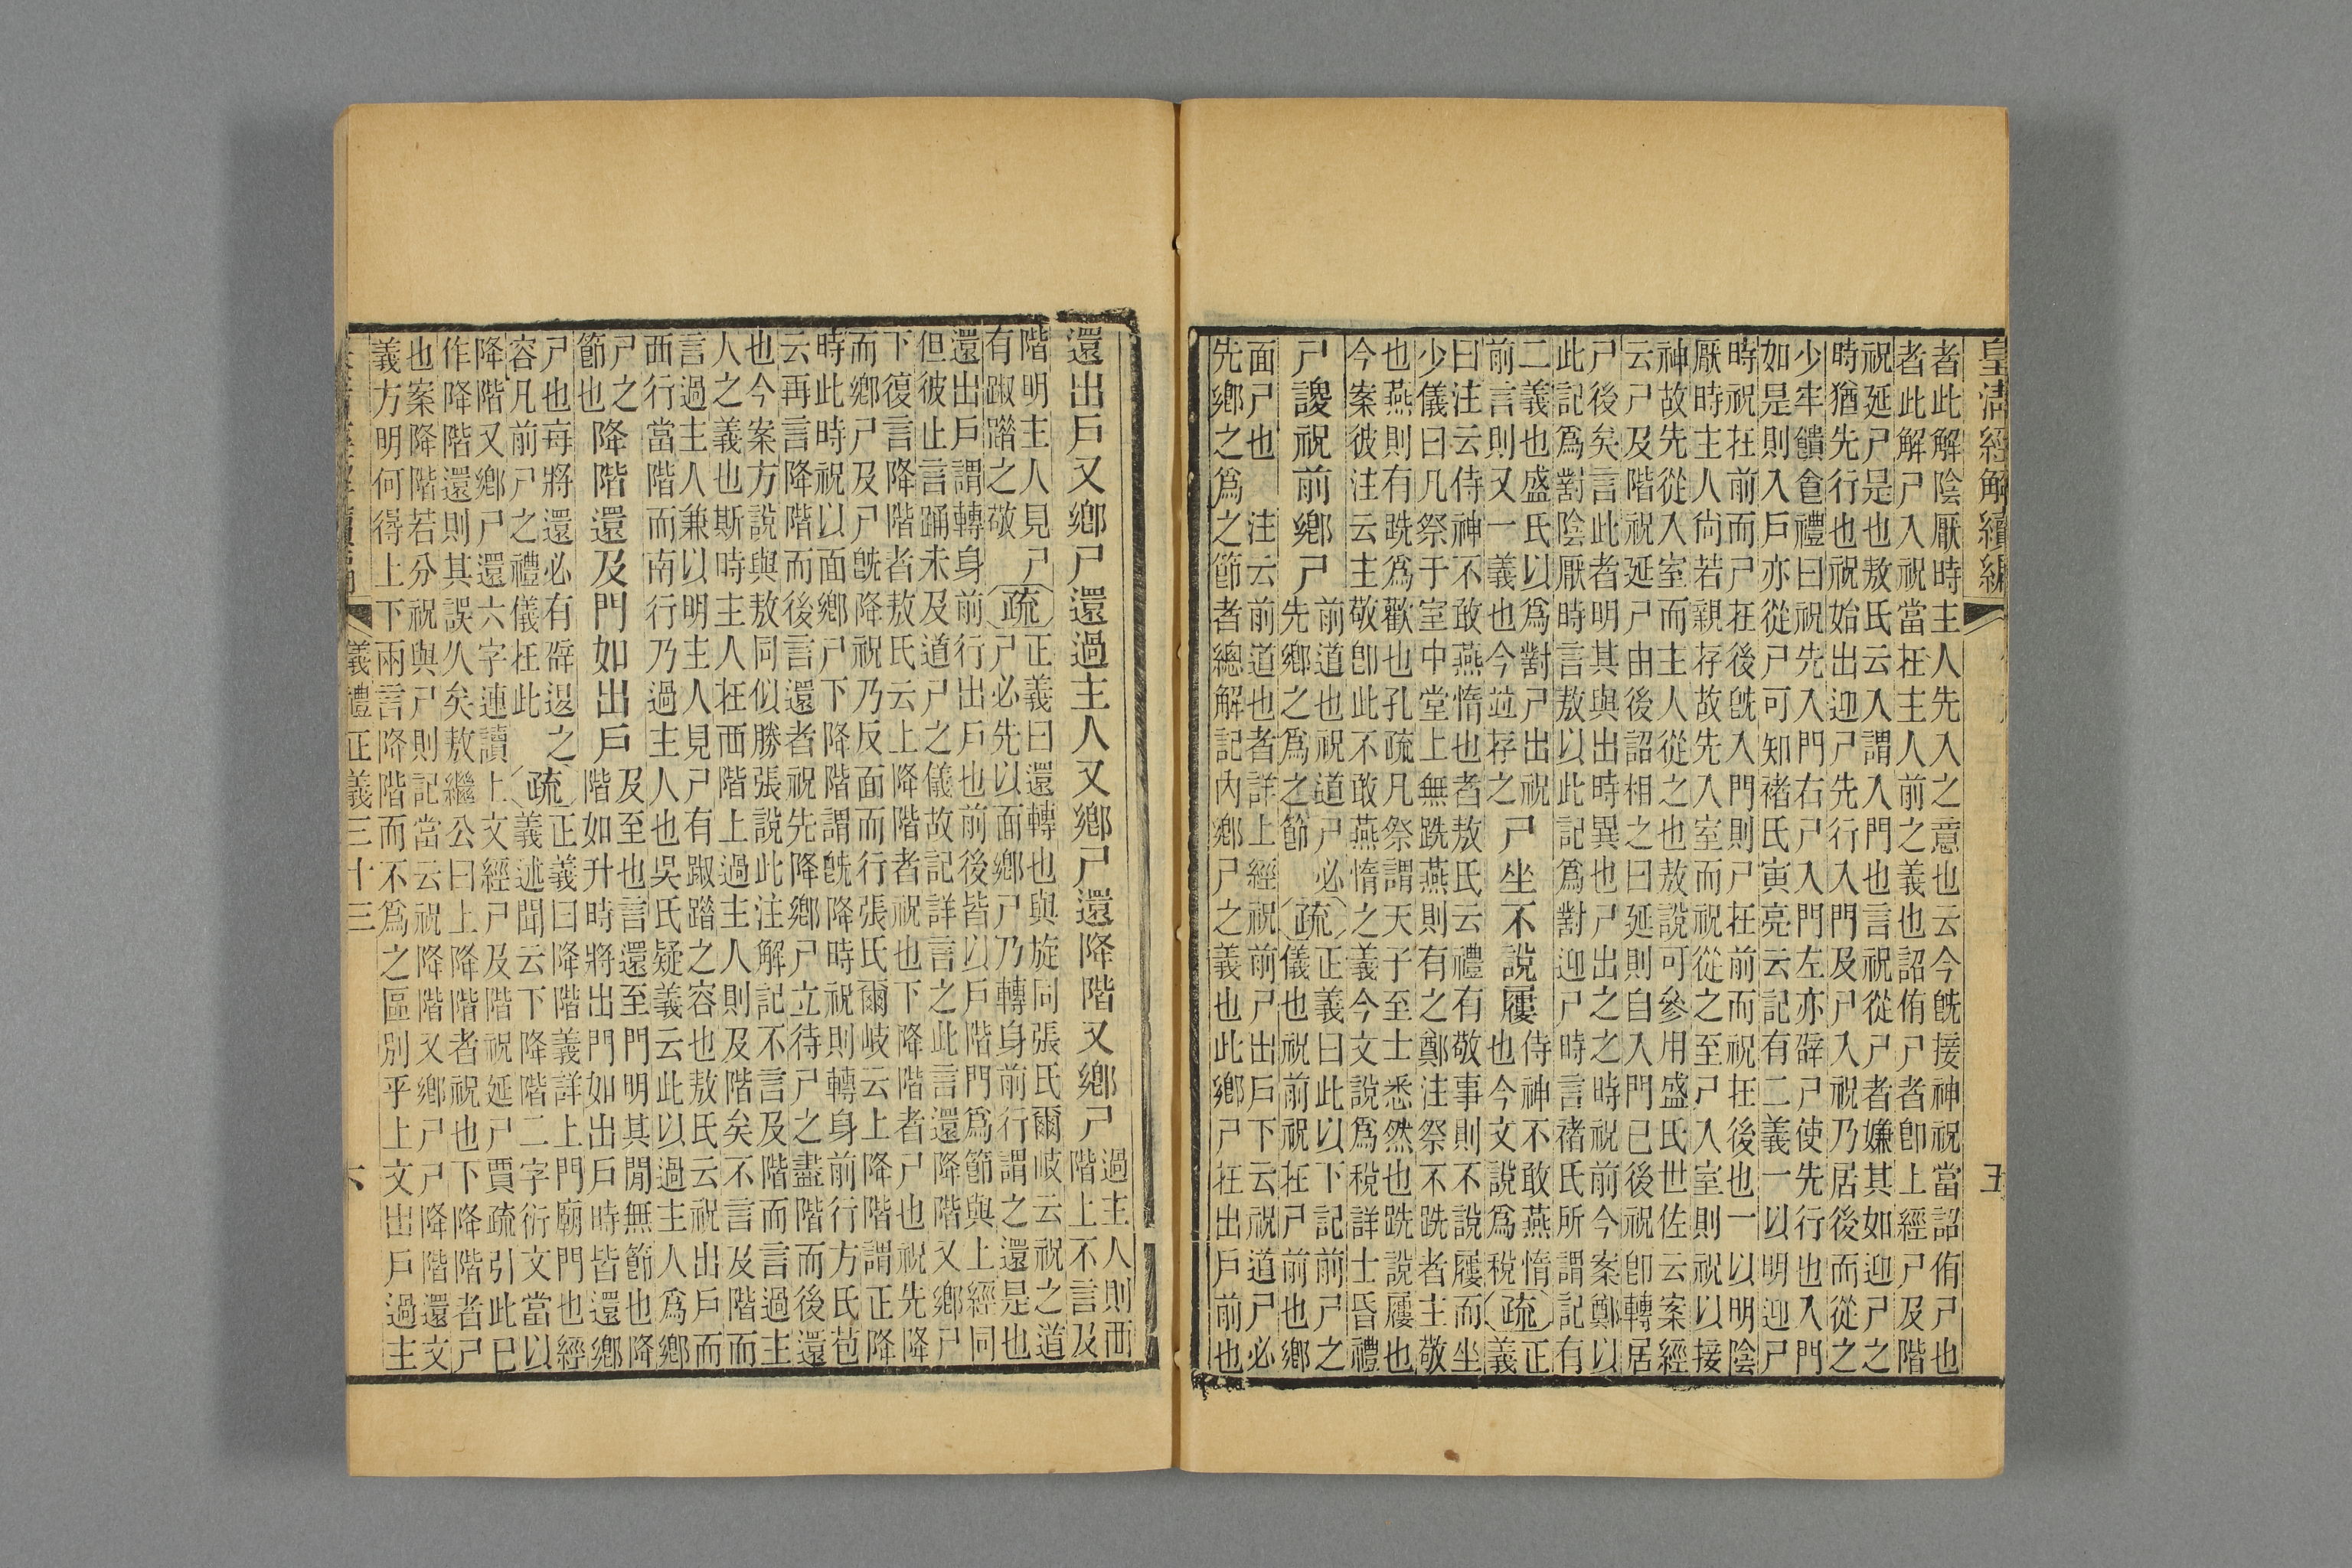 皇清經解續編
五
者此解陰厭時主人先入之意也云今旣接神祝當詔侑尸也
者此解尸入祝當在主人前之義也詔侑尸者卽上經尸及階
祝延尸是也敖氏云入謂入門也言祝從尸者嫌其如迎尸之
時猶先行也祝始出迎尸先行入門及尸入祝乃居後而從之
少牢饋食禮曰祝先入門右尸入門左亦辟尸使先行也入門
如是則入戶亦從尸可知褚氏寅亮云記有二義一以明迎尸
時祝在前而尸在後旣入門則尸在前而祝在後也一以明陰
厭時主人尚若親存故先入室而祝從之至尸入室則祝以接
神故先從入室而主人從之也敖說可參用盛氏世佐云案經
云尸及階祝延尸由後詔相之曰延則自入門已後祝卽轉居
尸後矣言此者明其與出時異也尸出之之時祝前今案鄭以
此記爲對陰厭時言敖以此記爲對迎尸時言褚氏所謂記有
二義也盛氏以爲對尸出祝
前言則又一義也今竝存之
尸坐不說屨
侍神不敢燕惰
也今文說爲稅
疏
正
義
曰注云侍神不敢燕惰也者敖氏云禮有敬事則不說屨而坐
少儀曰凡祭于室中堂上無跣燕則有之鄭注祭不跣者主敬
也燕則有跣爲歡也孔疏凡祭謂天子至士悉然也跣說屨也
今案彼注云主敬卽此不敢燕惰之義今文說爲稅詳士昏禮
尸謖祝前鄉尸
前道也祝道尸必
先鄉之爲之節
疏
正義曰此以下記前尸之
儀也祝前祝在尸前也鄉
面尸也 注云前道也者詳上經祝前尸出戶下云祝道尸必
先鄉之爲之節者總解記內鄉尸之義也此鄉尸在出戶前也
還出戶又鄉尸還過主人又鄉尸還降階又鄉尸
過主人則西
階上不言及
階明主人見尸
有踧踖之敬
疏
正義曰還轉也與旋同張氏爾岐云祝之道
尸必先以面鄉尸乃轉身前行謂之還是也
還出戶謂轉身前行出戶也前後皆以戶階門爲節與上經同
但彼止言踊未及道尸之儀故記詳言之此言還降階又鄉尸
下復言降階者敖氏云上降階者祝也下降階者尸也祝先降
而鄉尸及尸旣降祝乃反面而行張氏爾岐云上降階謂正降
時此時祝以面鄉尸下降階謂旣降時祝則轉身前行方氏苞
云再言降階而後言還者祝先降鄉尸立待尸之盡階而後還
也今案方說與敖同似勝張說此注解記不言及階而言過主
人之義也斯時主人在西階上過主人則及階矣不言及階而
言過主人兼以明主人見尸有踧踖之容也敖氏云祝出戶而
西行當階而南行乃過主人也吳氏疑義云此以過主人爲鄉
尸之
節也
降階還及門如出戶
及至也言還至門明其閒無節也降
階如升時將出門如出戶時皆還鄉
尸也每將還必有辟退之
容凡前尸之禮儀在此
疏
正義曰降階義詳上門廟門也經
義述聞云下降階二字衍文當以
降階又鄉尸還六字連讀上文經尸及階祝延尸賈疏引此已
作降階還則其誤久矣敖繼公曰上降階者祝也下降階者尸
也案降階若分祝與尸則記當云祝降階又鄉尸尸降階還文
義方明何得上下兩言降階而不爲之區別乎上文出戶過主
儀禮正義三十三
六